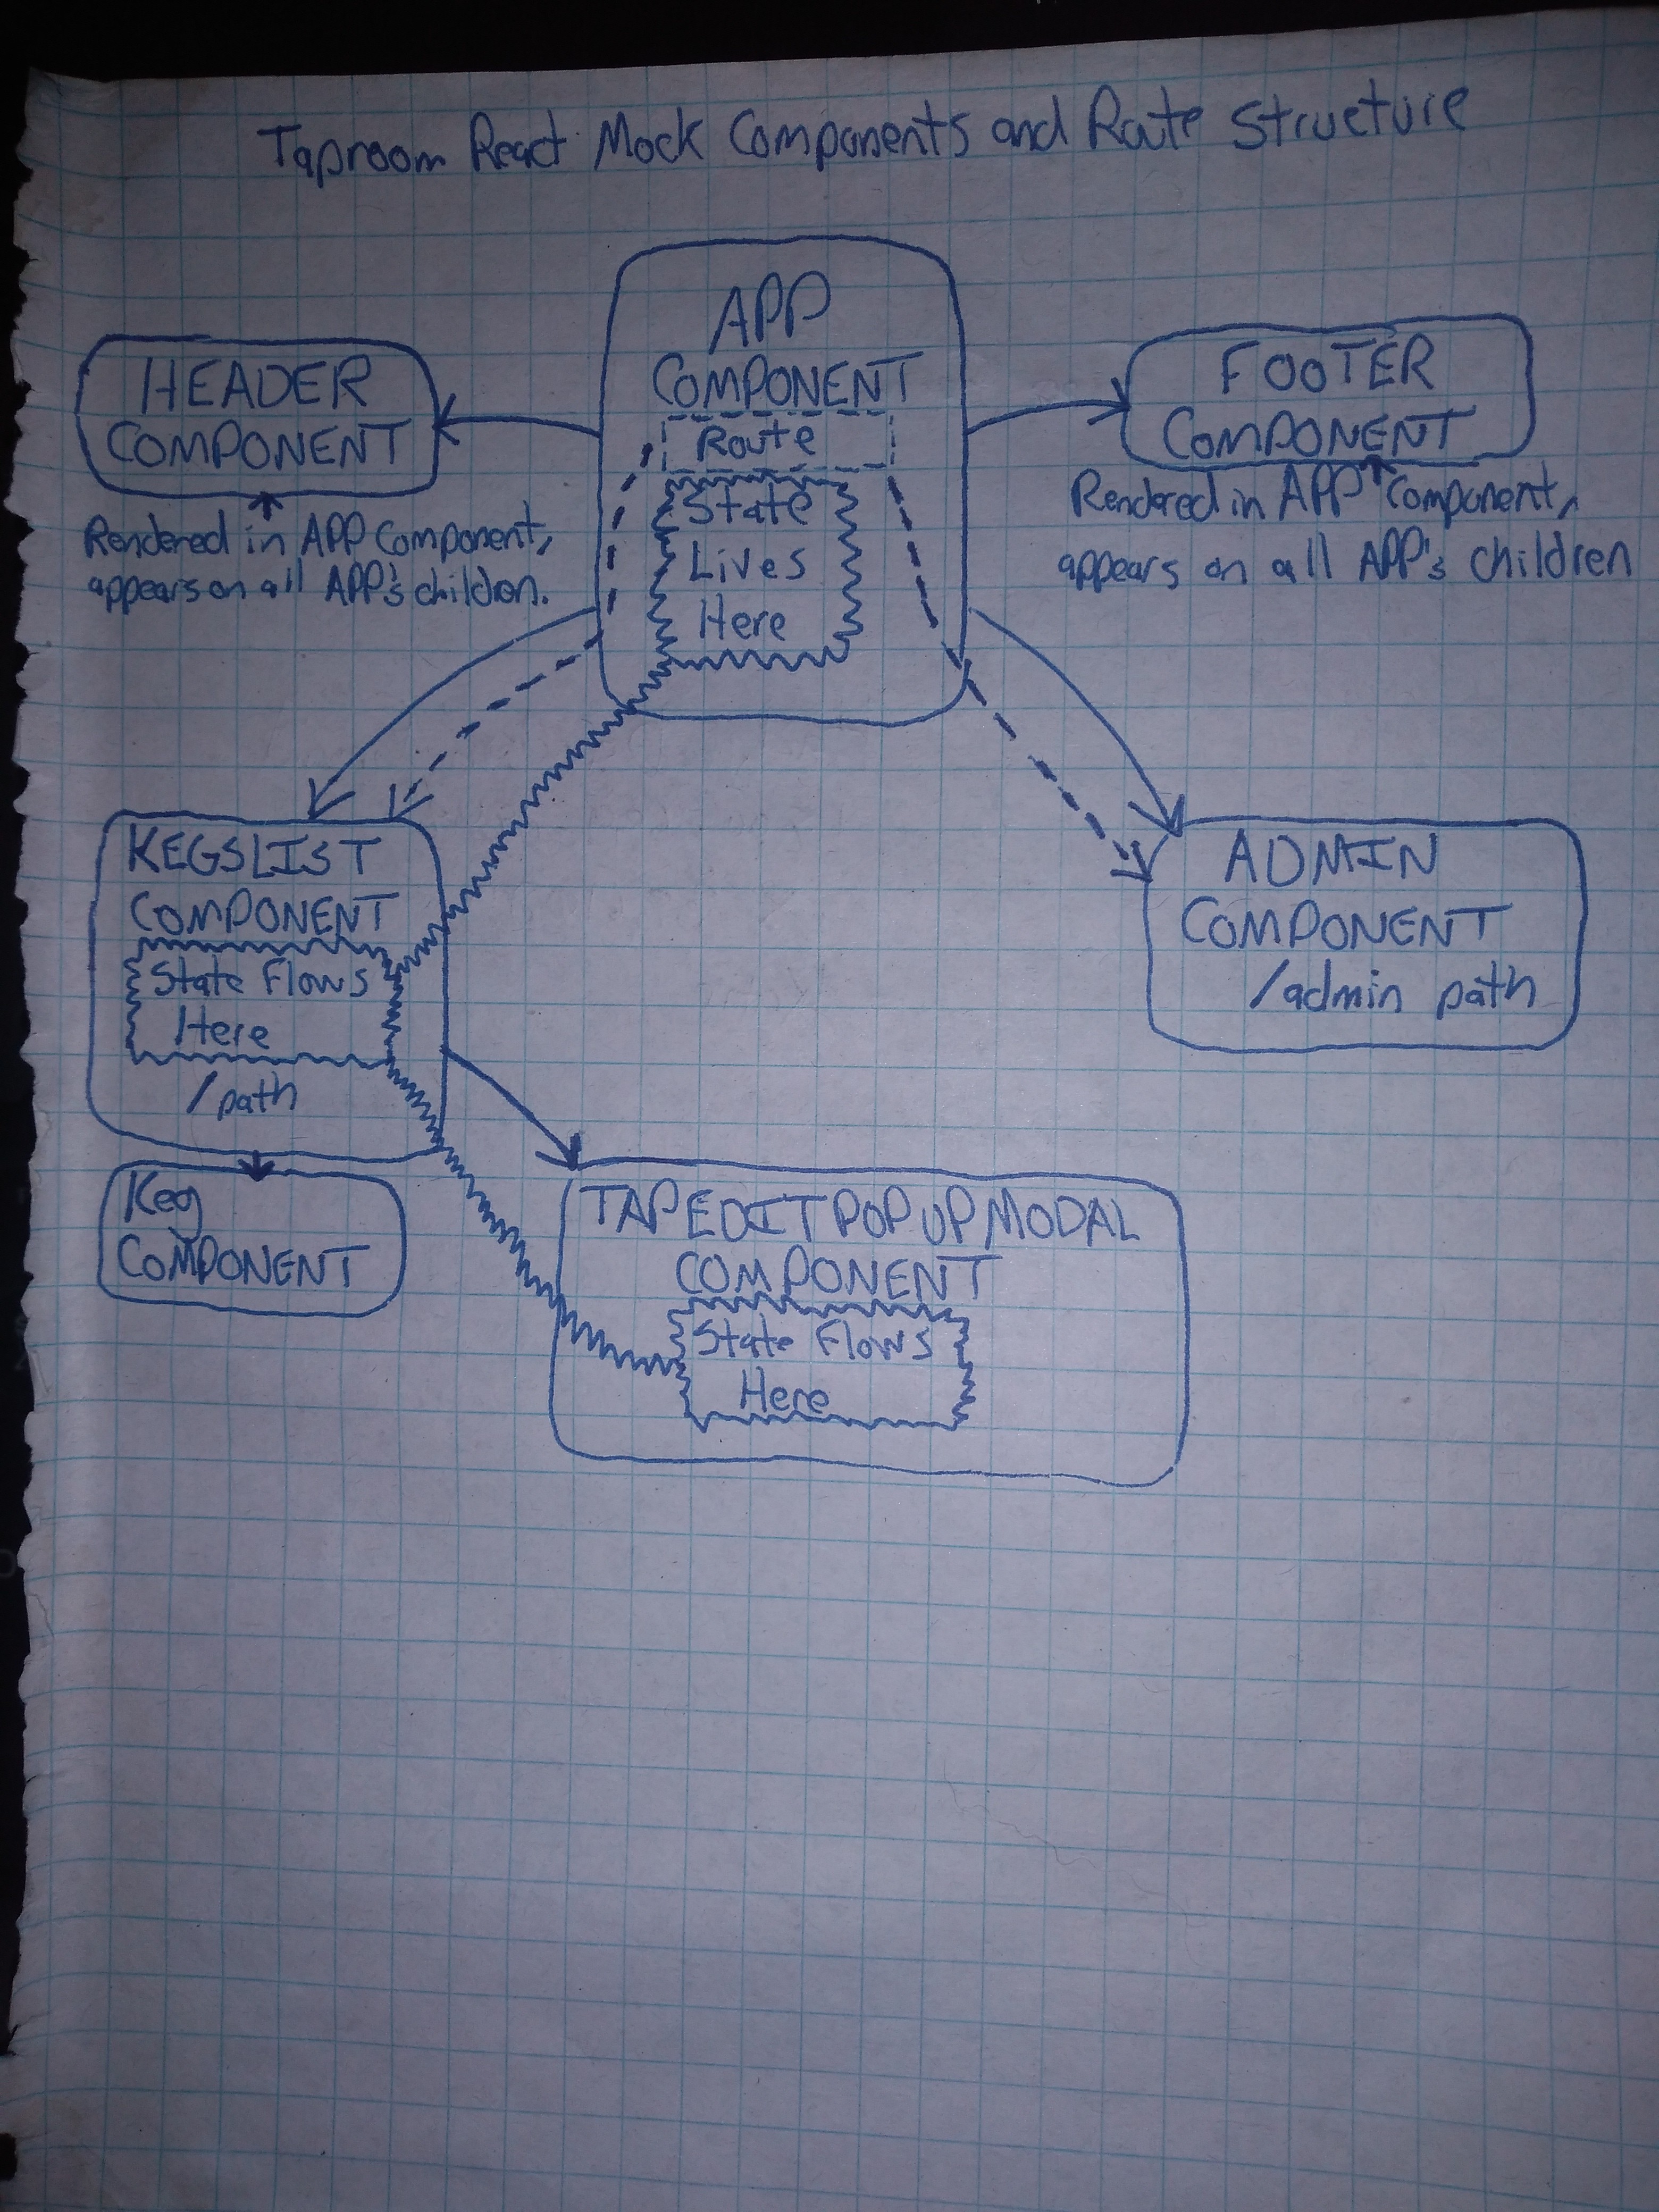 Taproom React Mock Components and Route Structure
APP
COMPONENT
Route
State
Lives
Here
HEADER
COMPONENT
Rendered in APP Component,
appears on all APP's children.
FOOTER
COMPONENT
Rendered in APP Component,
appears on all APP's children
KEGSLIST
COMPONENT
State Flows
Here
/path
ADMIN
COMPONENT
/admin path
Keg
COMPONENT
TAPEDITPOPUPMODAL
COMPONENT
State Flows
Here